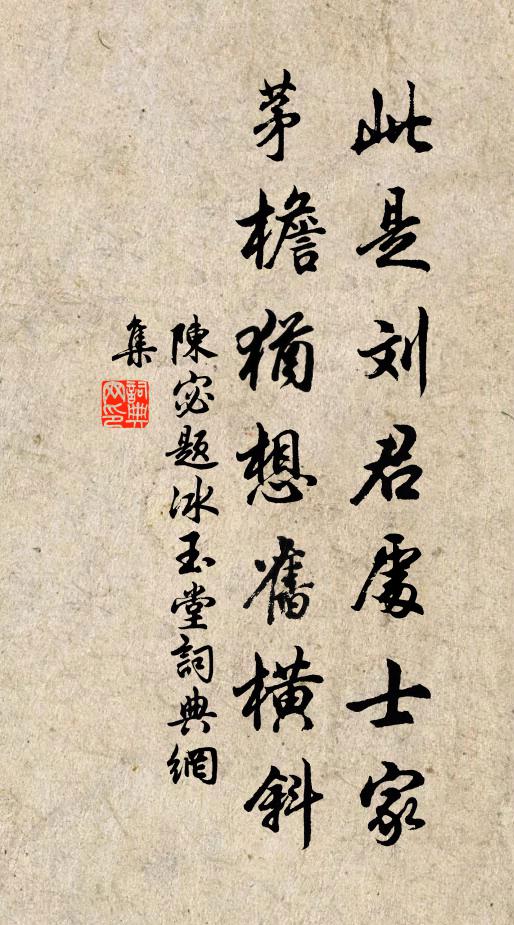 此是刘君處士家
茅檐猶想舊橫斜
陳宓題冰玉堂詞典網
集
詞典
网印